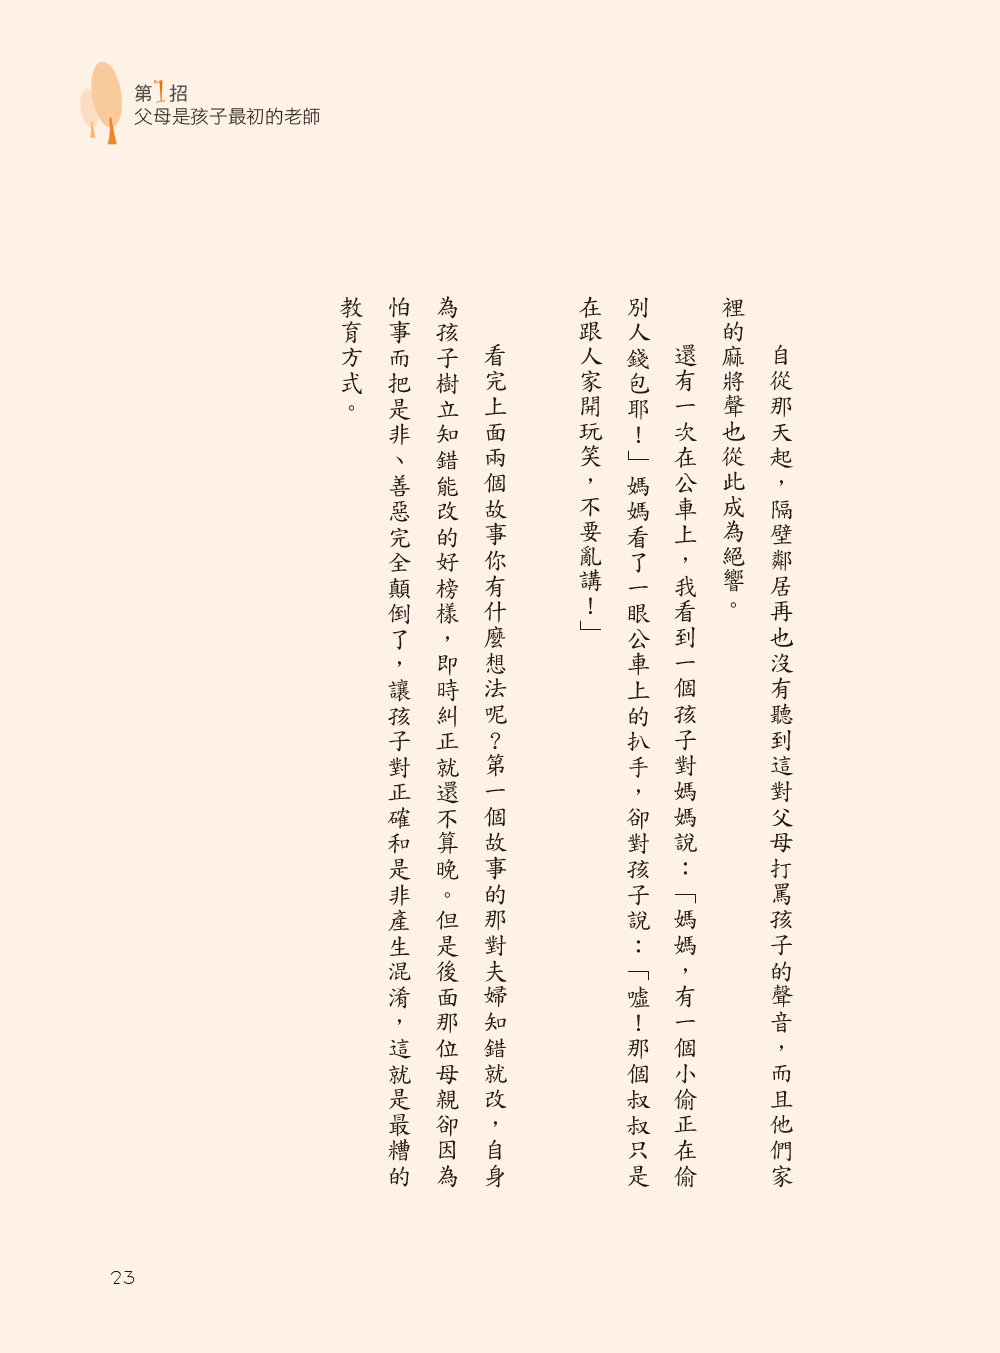 第1招
父母是孩子最初的老師
自從那天起，隔壁鄰居再也沒有聽到這對父母打罵孩子的聲音，而且他們家
裡的麻將聲也從此成為絕響。
還有一次在公車上，我看到一個孩子對媽媽說：「媽媽，有一個小偷正在偷
別人錢包耶！」媽媽看了一眼公車上的扒手，卻對孩子說：「噓！那個叔叔只是
在跟人家開玩笑，不要亂講！」
看完上面兩個故事你有什麼想法呢？第一個故事的那對夫婦知錯就改，自身
為孩子樹立知錯能改的好榜樣，即時糾正就還不算晚。但是後面那位母親卻因為
怕事而把是非、善惡完全顛倒了，讓孩子對正確和是非產生混淆，這就是最糟的
教育方式。
23